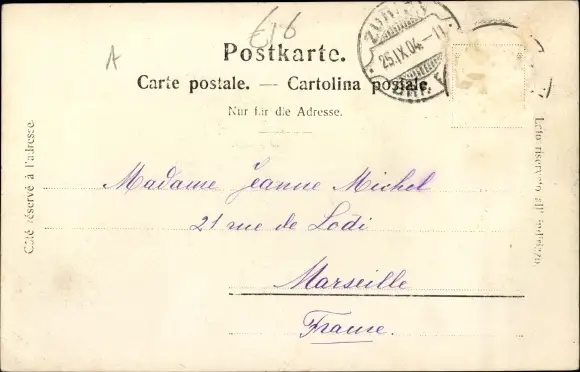 616
A
Postkarte.
Carte postale. — Cartolina postale.
Nur für die Adresse.
25.IX.04.-11
Côté réservé à l'adresse.
Lato riservato all' indirizzo
Madame Jeanne Michel
21 rue de Lodi
Marseille
France.